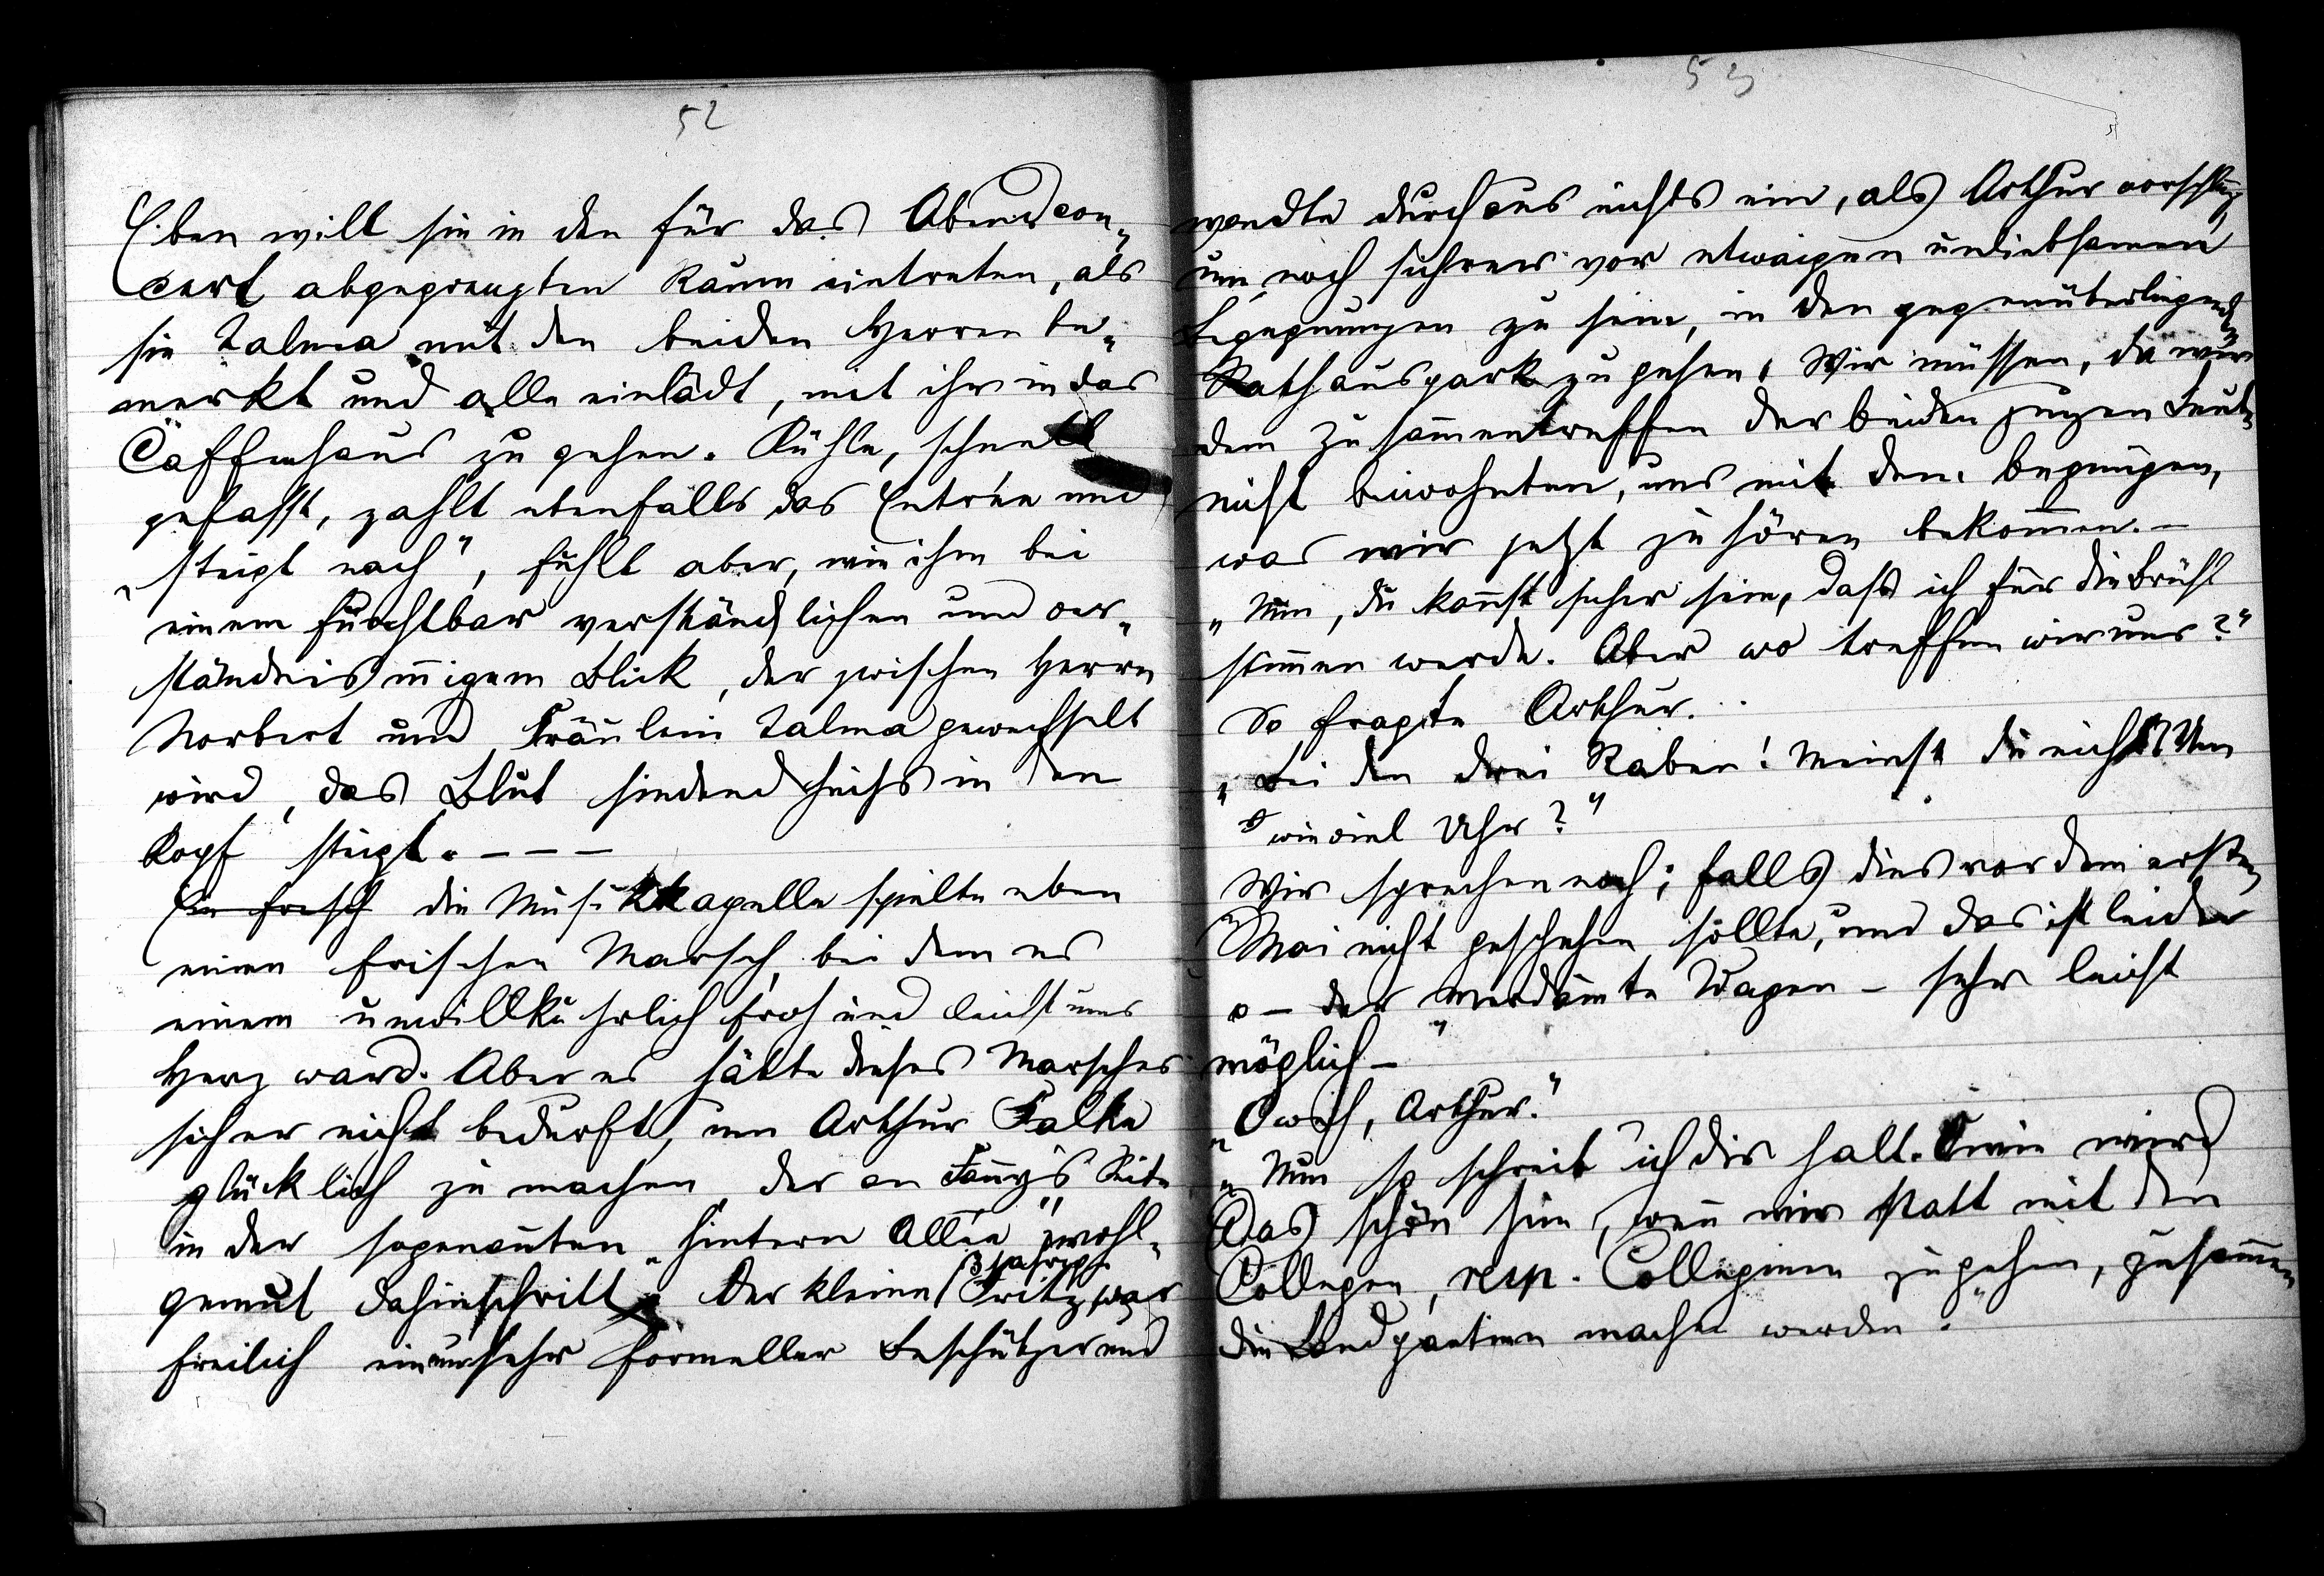 52
Eben will sie in den für das Abendcon„
cert abgegrenzten Raum eintreten, als
sie Talma mit den beiden Herren be„
merkt und alle einlädt, mit ihr in das
Caffeehaus zu gehen. Kühle, schnell
gefasst, zahlt ebenfalls das Entrée und
„steigt nach“, fühlt aber, wie ihm bei
einem furchtbar verständlichen und ver„
ständnisinnigem Blick, der zwischen Herrn
Norbert und Fräulein Talma gewechselt
wird, das Blut siedend heiss in den
Kopf steigt. – – –
Ein frisch die Musikkapelle spielte eben
einen frischen Marsch, bei dem es
einem unwillkührlich froh und leicht ums
Herz ward. Aber es hätte dieses Marsches
sicher nicht bedurft, um Arthur Falke
glücklich zu machen, der an Fanny's Seite
in der sogenannten „hintern Allée“ wohl„
gemut dahinschritt. Der kleine 3jährige Fritz war
freilich ein nur sehr formeller Beschützer und
53
wendte durchaus nichts ein, als Arthur vorschlug,
um noch sicherer vor etwaigen unliebsamen
Begegnungen zu sein, in den gegenüberliegenden
Rathauspark zu gehen. Wir müssen, da wir
dem Zusammentreffen der beiden jungen Leute
nicht beiwohnten, uns mit dem begnügen,
was wir jetzt zu hören bekommen. –
„Nun, du kannst sicher sein, dass ich für die Brühl
stimmen werde. Aber wo treffen wir uns?“
So fragte Arthur.
„Bei den drei Raben! Meinst du nicht? Um
wieviel Uhr?“
Wir sprechen noch; falls dies vor dem ersten
Mai nicht geschehen sollte, und das ist leider
o – der verdammte Wagen – sehr leicht
möglich –“
„O weh, Arthur.“
„Nun so schreib ich dir halt. O wie wird
das schön sein, wenn wir statt mit den
Collegen, resp. Colleginen zu gehen, zusammen
die Landpartien machen werden.“